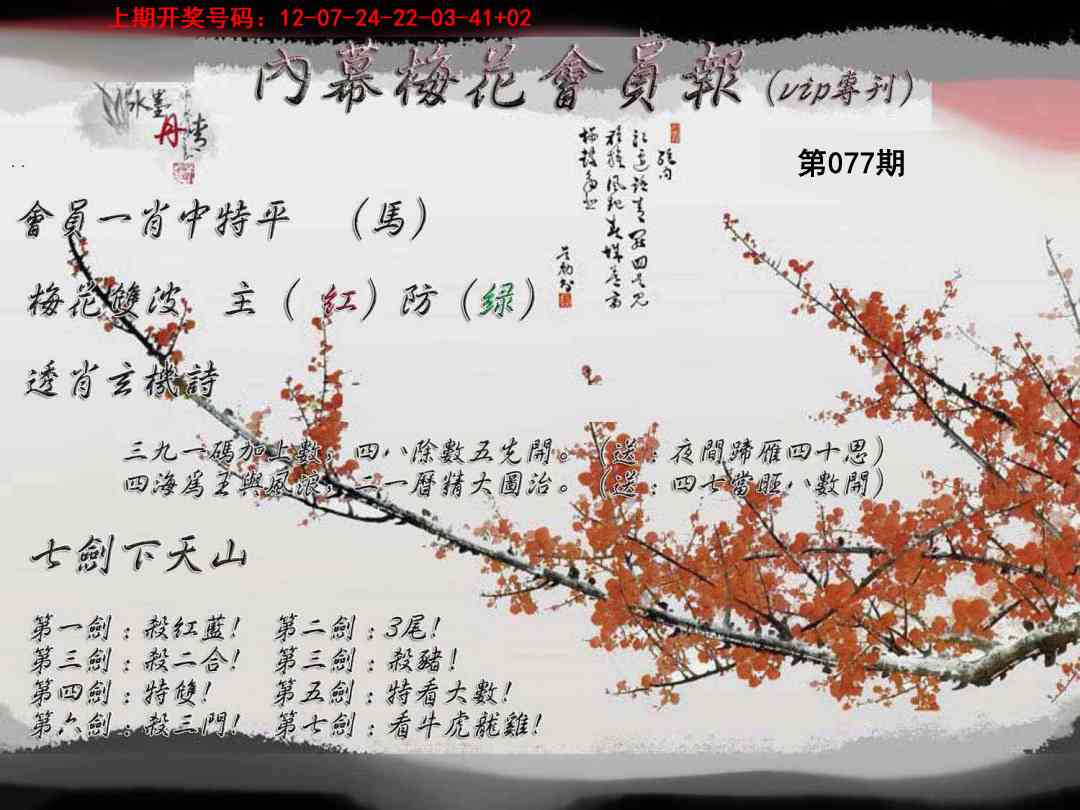 上期开奖号码：12-07-24-22-03-41+02
內幕梅花會員報（vip專刊）
水墨
丹青
第077期
會員一肖中特平 （馬）
梅花雙波 主（紅）防（綠）
透肖玄機詩
三九一碼加上數，四八除數五先開。（送：夜間蹄雁四十思）
四海為王與風浪，二一曆精大圖治。（送：四七當旺八數開）
七劍下天山
第一劍：殺紅藍！ 第二劍：3尾！
第三劍：殺二合！ 第三劍：殺豬！
第四劍：特雙！ 第五劍：特看大數！
第六劍：殺三門！ 第七劍：看牛虎龍雞！